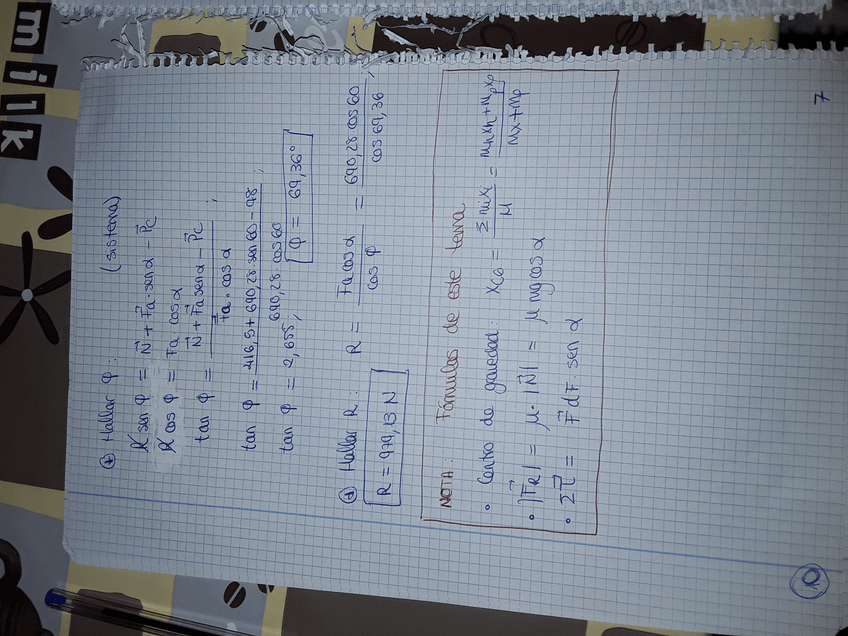 milk
⊕ Hallar φ : (sistema)
R sen φ = N⃗ + F⃗a · sen α − P⃗c
R cos φ = Fa cos α
tan φ = (N⃗ + F⃗a sen α − P⃗c) / (F⃗a · cos α) ;
tan φ = (416,5 + 690,28 · sen 60 − 98) / (690,28 · cos 60) ;
tan φ = 2,655 ; φ = 69,36°
⊕ Hallar R : R = (Fa cos α) / (cos φ) = (690,28 · cos 60) / (cos 69,36) ;
R = 979,13 N
NOTA : Fórmulas de este tema
• Centro de gravedad : XCG = (Σ mi xi) / M = (mx xn + mp xp) / (mx + mp)
• |F⃗R| = μ · |N⃗| = μ mg cos α
• Στ⃗ = F⃗ dF · sen α
10
7